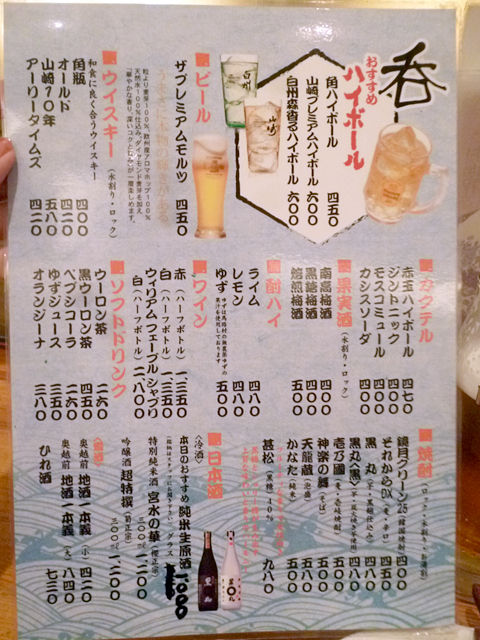 呑
おすすめ
ハイボール
角ハイボール 四五〇
山崎プレミアムハイボール 六〇〇
白州森香るハイボール 六〇〇
白州
山崎
ビール
ザプレミアムモルツ 四五〇
ウイスキー
和食に良く合うウイスキー（水割り・ロック）
角瓶 四〇〇
オールド 四二〇
山崎10年 五八〇
アーリータイムズ 四二〇
カクテル
赤玉ハイボール 四七〇
ジントニック 四〇〇
モスコミュール 四〇〇
カシスソーダ 四〇〇
果実酒（水割り・ロック）
南高梅酒 四〇〇
黒糖梅酒 四〇〇
焙煎梅酒 五〇〇
酎ハイ
ライム 四八〇
レモン 四八〇
ゆず 五〇〇
ワイン
赤（ハーフボトル） 一三五〇
白（ハーフボトル） 一三五〇
ウィリアムフェーブルシャブリ
白（ハーフボトル） 二八〇〇
ソフトドリンク
ウーロン茶 二六〇
黒ウーロン茶 四五〇
ペプシコーラ 二六〇
ゆずジュース 三五〇
オランジーナ 三八〇
焼酎（ロック・水割り・お湯割）
鏡月グリーン25（韓国焼酎） 四〇〇
それからDX（麦・辛口） 四五〇
黒丸（芋・黒麹仕込み） 四五〇
壱乃國（麦・壱岐焼酎） 五〇〇
神楽の舞（そば） 五〇〇
天龍蔵（泡盛） 五五〇
かなた（純米） 五〇〇
甚松（黒糖）40% 九八〇
日本酒
〈冷酒〉
本日のおすすめ 純米生原酒
グラス 1000
特別純米酒 宮水の華（櫻正宗）
三〇〇ml 一二〇〇
吟醸酒 超特撰（菊正宗）
三〇〇ml 一二〇〇
〈燗酒〉
奥越前 地酒一本義（小） 四二〇
奥越前 地酒一本義（大） 八四〇
ひれ酒 七三〇